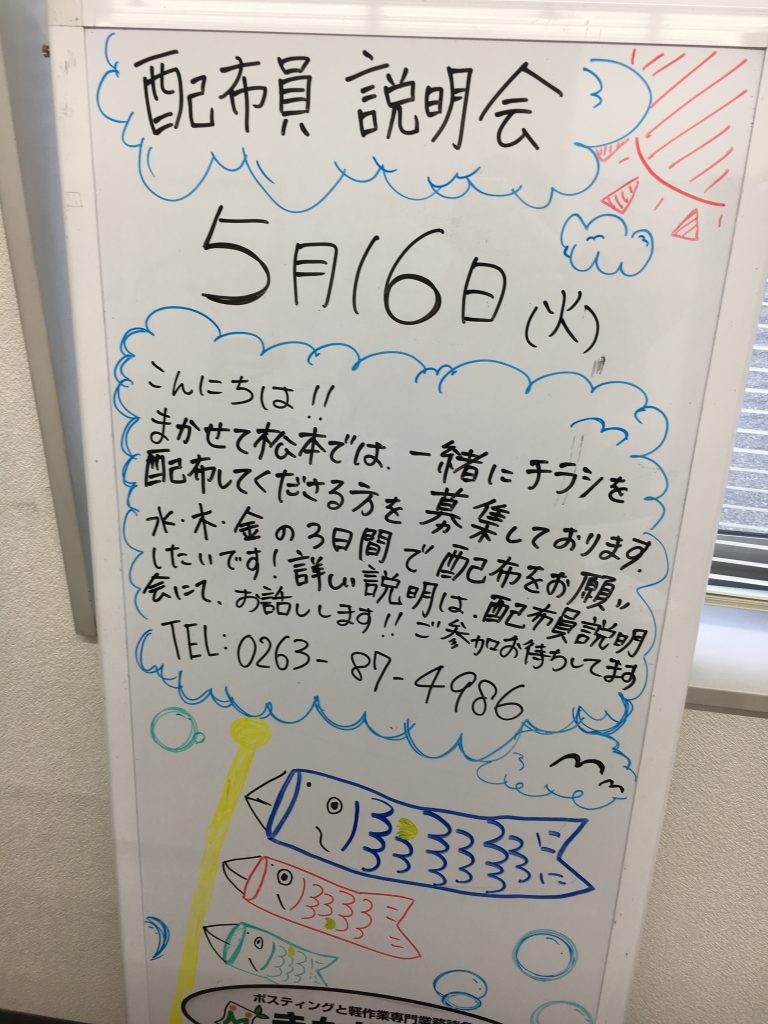 配布員 説明会
5月16日(火)
こんにちは!!
まかせて松本では、一緒にチラシを
配布してくださる方を募集しております.
水・木・金の3日間で配布をお願い
したいです!詳しい説明は、配布員説明
会にて、お話しします!!ご参加お待ちしてます
TEL: 0263-87-4986
ポスティングと軽作業専門業務請